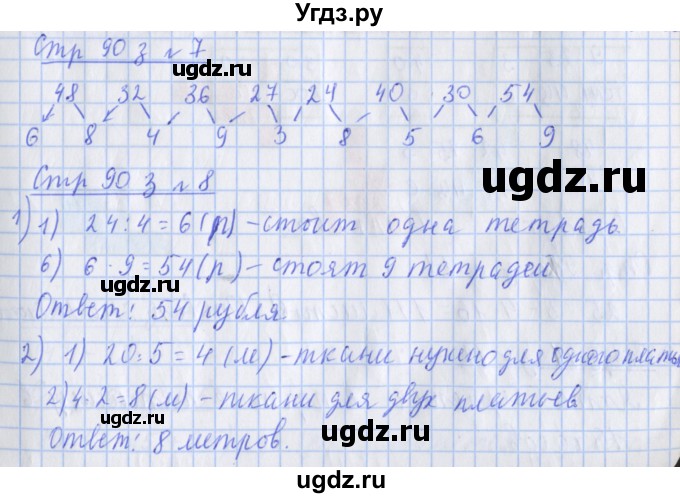 Угдз.ру
Стр 90 з № 7
ugdz.ru
ugdz.ru
48 32 36 27 24 40 30 54
6 8 4 9 3 8 5 6 9
ugdz.ru
Стр 90 з № 8
ugdz.ru
1) 1) 24:4=6(р) – стоит одна тетрадь
6) 6·9=54(р) – стоят 9 тетрадей
ugdz.ru
Ответ: 54 рубля.
ugdz.ru
2) 1) 20:5=4(м) – ткани нужно для одного платья
2) 4·2=8(м) – ткани для двух платьев
ugdz.ru
ugdz.ru
Ответ: 8 метров.
ugdz.ru